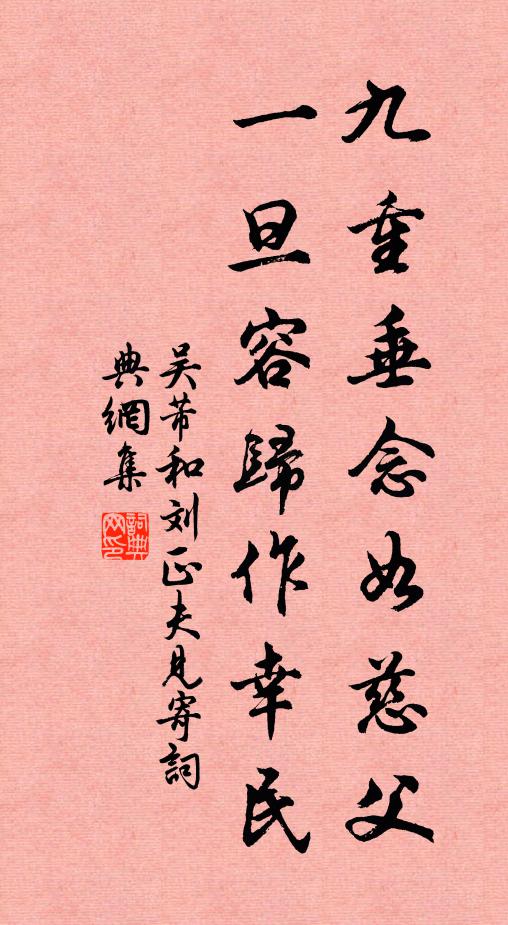 九重垂念如慈父
一旦容歸作幸民
吴芾和刘正夫見寄詞
典網集
詞典
网印